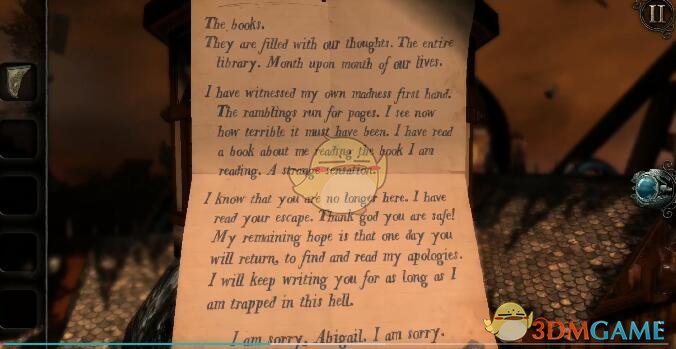 The books.
They are filled with our thoughts. The entire
library. Month upon month of our lives.
I have witnessed my own madness first hand.
The ramblings run for pages. I see now
how terrible it must have been. I have read
a book about me reading the book I am
reading. A strange sensation.
I know that you are no longer here. I have
read your escape. Thank god you are safe!
My remaining hope is that one day you
will return, to find and read my apologies.
I will keep writing you for as long as I
am trapped in this hell.
I am sorry, Abigail. I am sorry.
3DMGAME